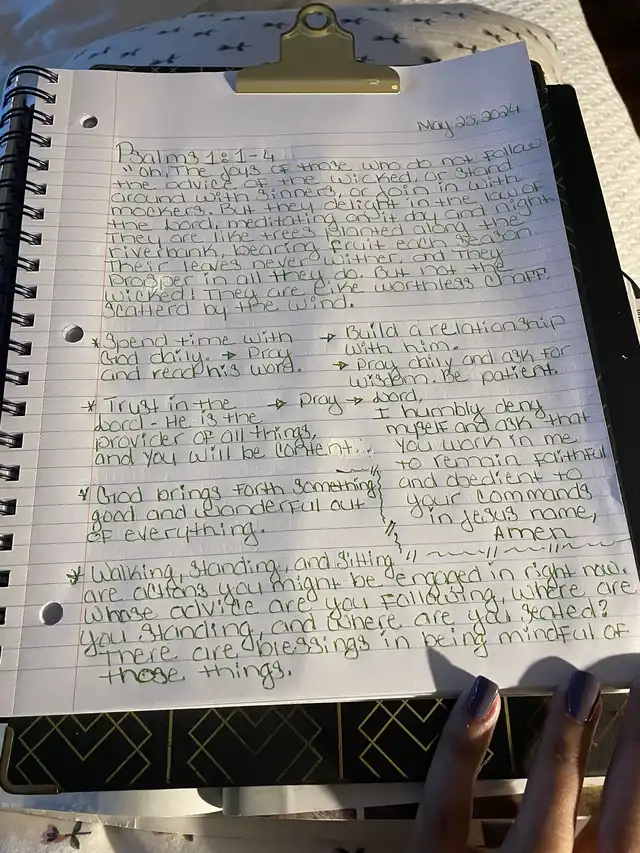 May 25, 2024
Psalms 1:1-4
"Oh, The joys of those who do not follow
the advice of the wicked, or stand
around with sinners, or join in with
mockers. But they delight in the law of
the Lord, meditating on it day and night.
They are like trees planted along the
riverbank, bearing fruit each season.
Their leaves never wither and they
prosper in all they do. But not the
wicked! They are like worthless chaff,
scatterd by the wind.
* Spend time with
God daily. → Pray
and read his word.
→ Build a relationship
with him.
→ Pray daily and ask for
wisdom. Be patient.
* Trust in the → Pray →
Lord - He is the
provider of all things,
and you will be content...
Lord,
I humbly deny
myself and ask that
you work in me
to remain faithful
and obedient to
your commands
in Jesus name,
Amen
* God brings forth something
good and wonderful out
of everything.
* Walking, Standing, and Sitting
are actions you might be engaged in right now.
Whose advide are you following, where are
you standing, and where are you seated?
There are blessings in being mindful of
those things.